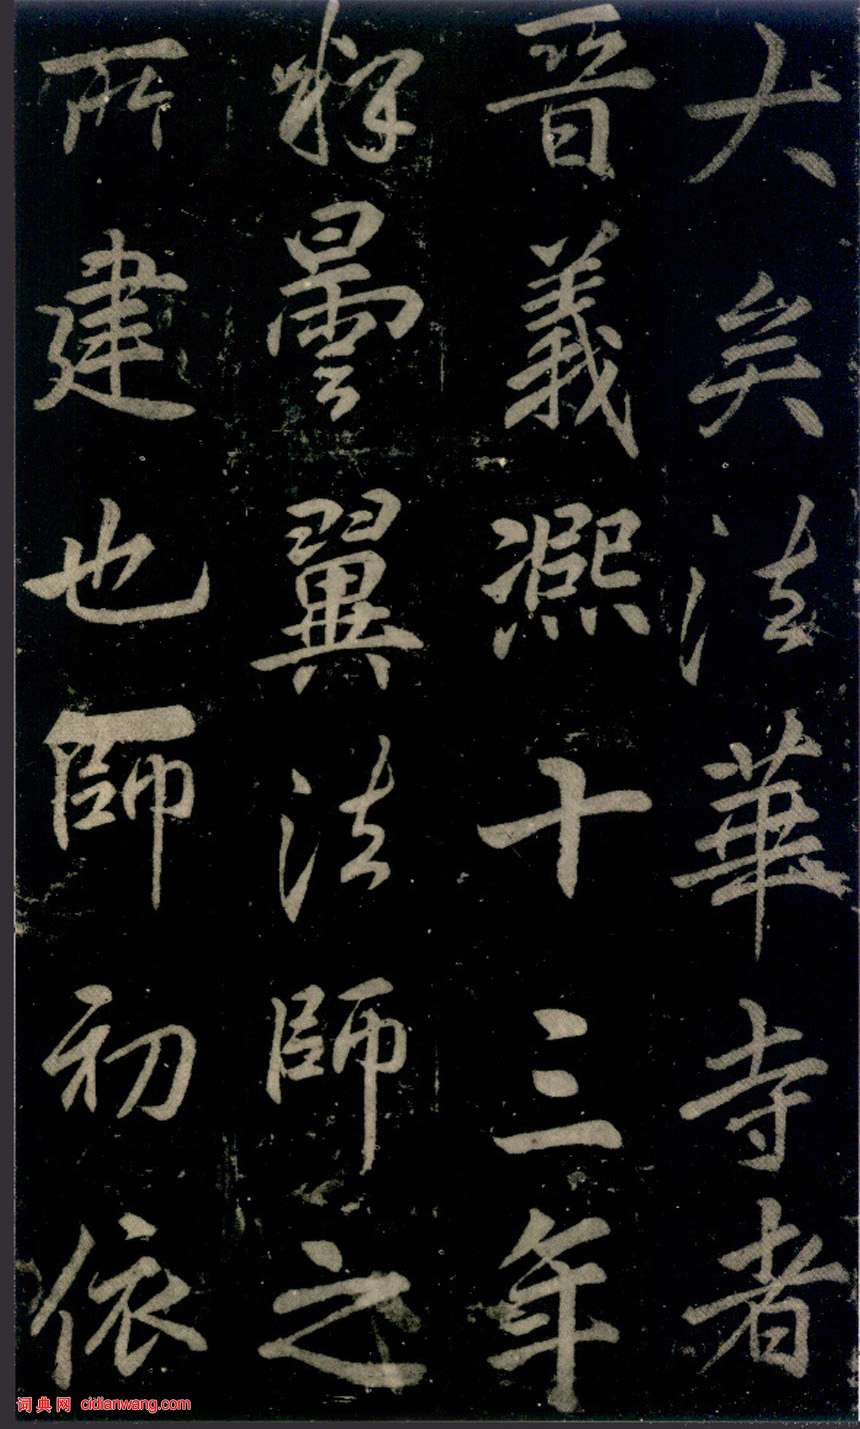 大矣法華寺者
晉義熙十三年
釋曇翼法師之
所建也師初依
词典网 cidianwang.com